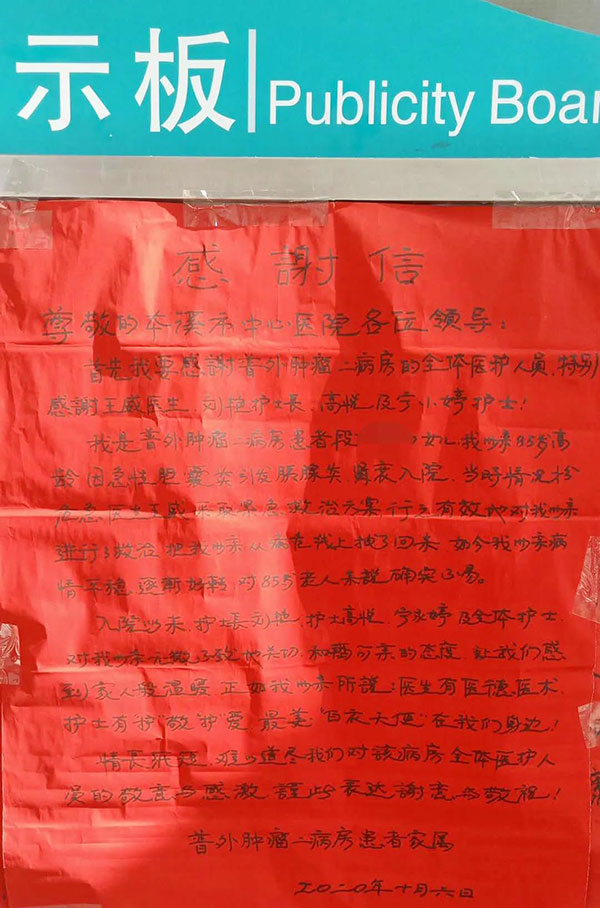 示板 Publicity Boar
感謝信
尊敬的本溪市中心医院各位领导：
首先我要感謝普外肿瘤二病房的全体医护人员，特别
感謝王威医生、刘艳护士长、高悦及宁小婷护士！
我是普外肿瘤二病房患者段 女儿，我母亲85岁高
龄因急性胆囊炎引发胰腺炎、肾衰入院，当时情况
危急医生王威采取紧急救治方案行之有效地对我母亲
进行了救治把我母亲从病危线上拽了回来 如今我母亲病
情平稳，逐渐好转，对85岁老人来说确实不易。
入院以来，护士长刘艳，护士高悦，宁小婷及全体护士，
对我母亲无微不至地关切，和蔼可亲的态度，让我们感
到家人般温暖 正如我母亲所説：医生有医德医术，
护士有护"敬"护爱 最美"白衣天使"在我们身边！
情长纸短，难以道尽我们对該病房全体医护人
员的敬意与感激 謹此表达謝意与敬礼！
普外肿瘤二病房患者家属
二〇二〇年十月六日